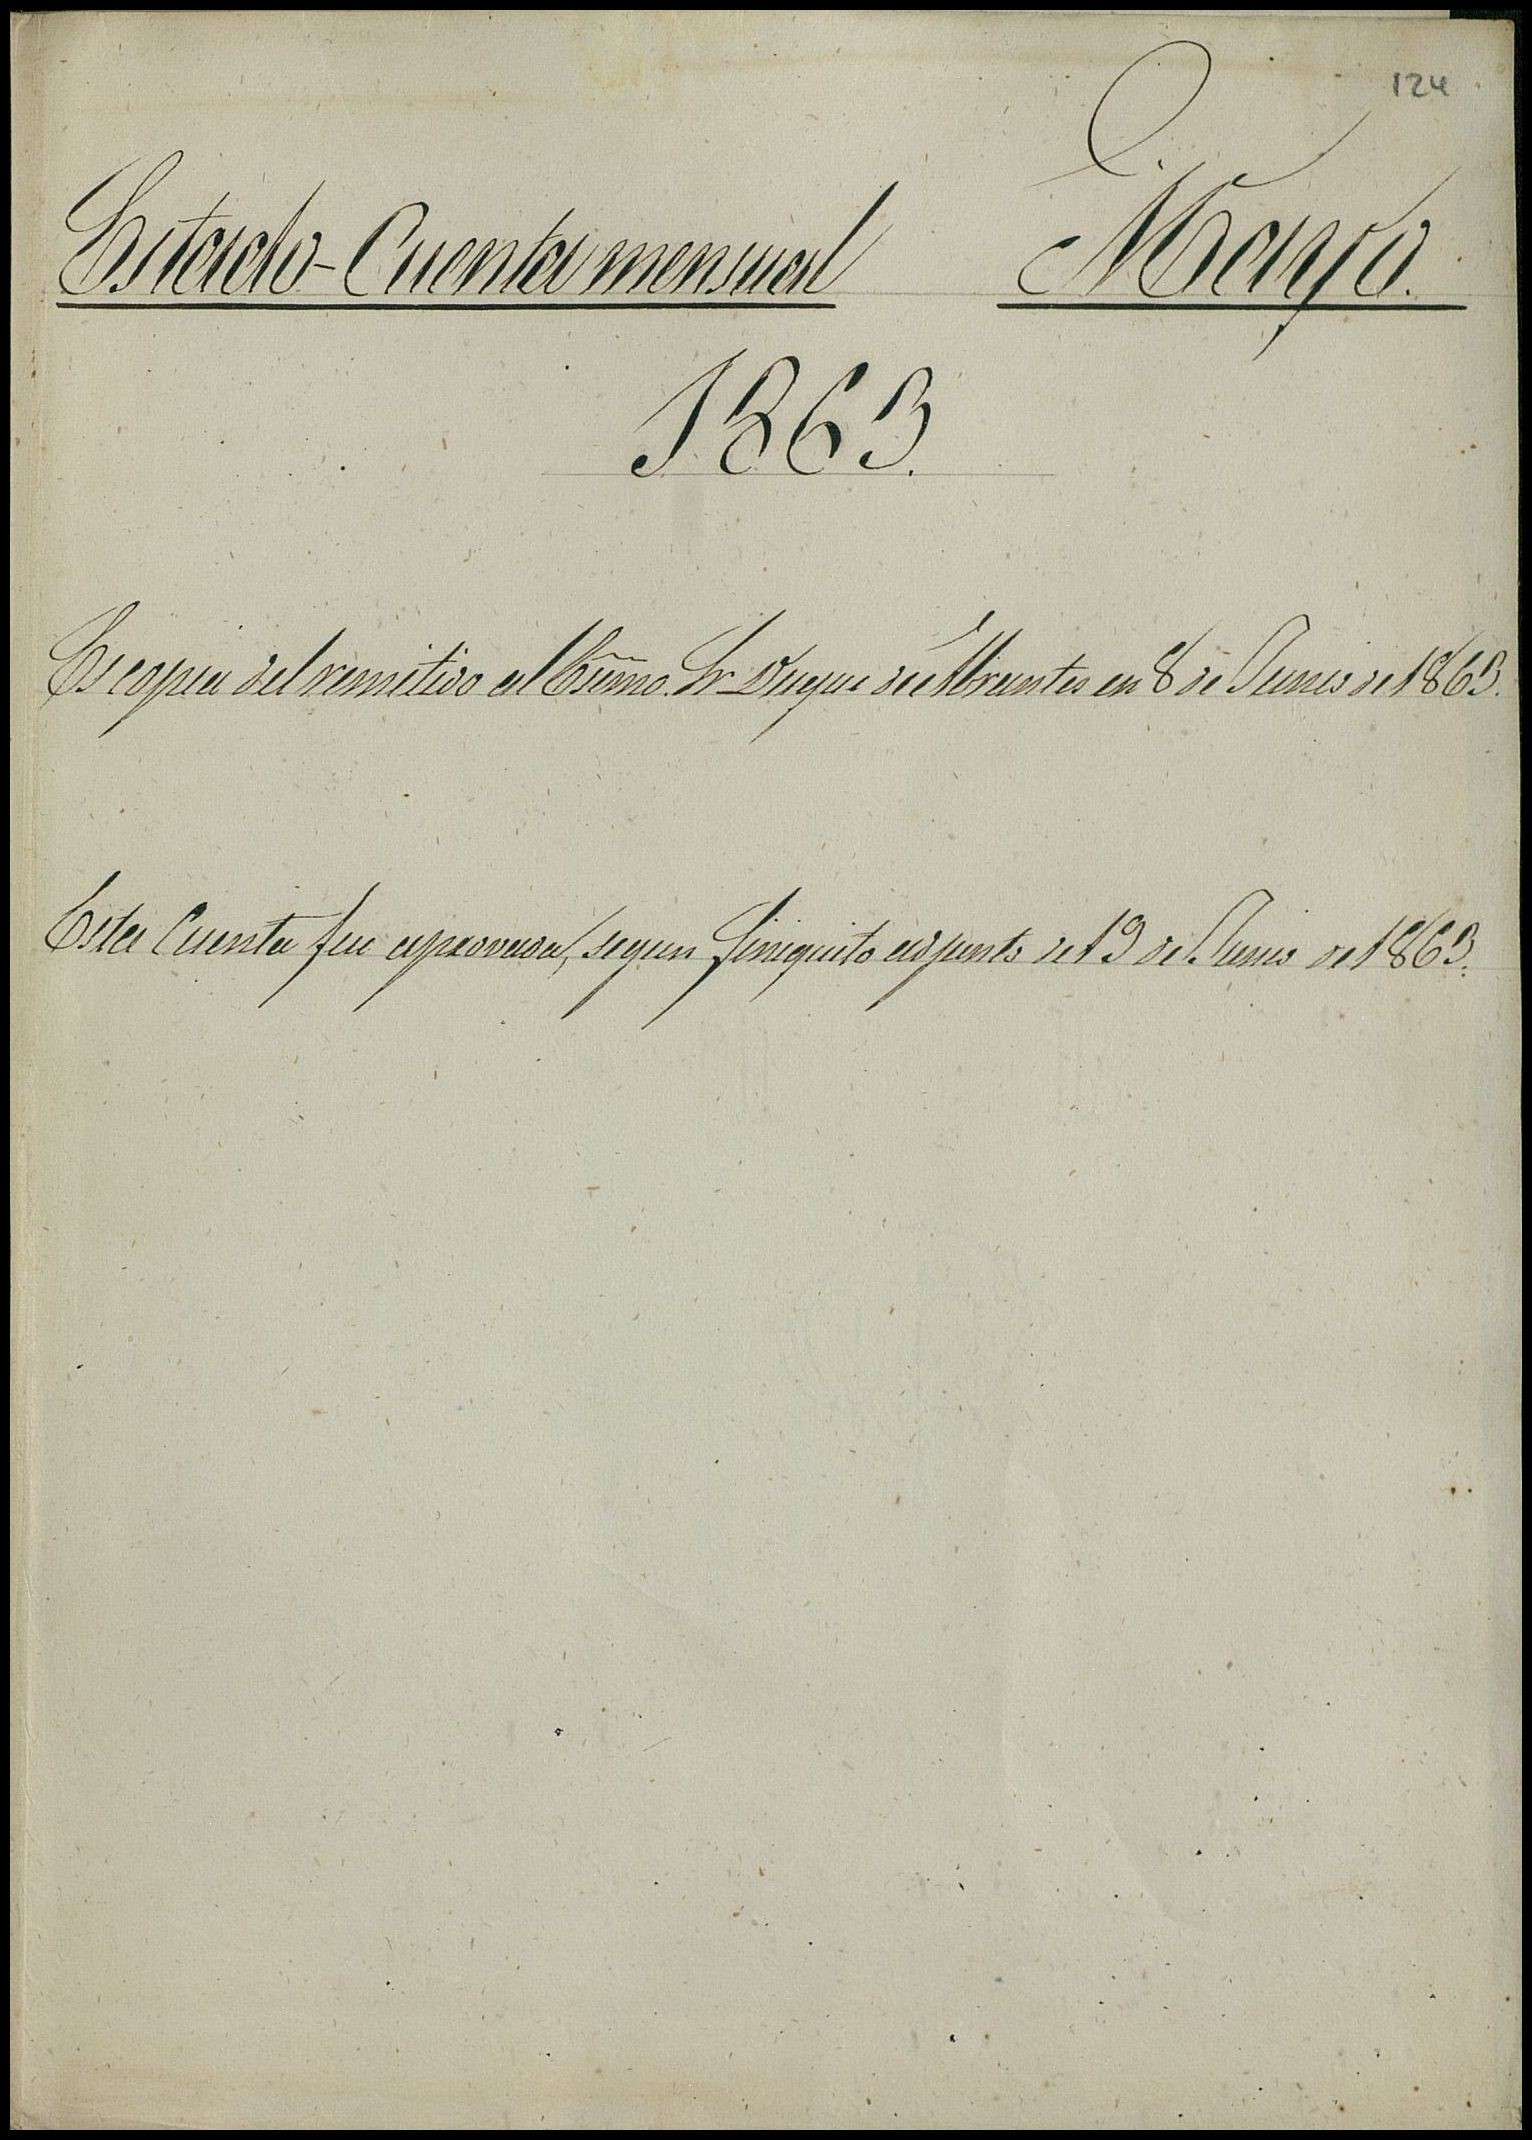 124
Estado-Cuenta mensual Mayo.
1863.
Es copia del remitido al Exmo. Sr. Duque de Abrantes en 8 de Junio de 1863.
Esta Cuenta fue aprovada, segun finiquito adjunto de 19 de Junio de 1863.